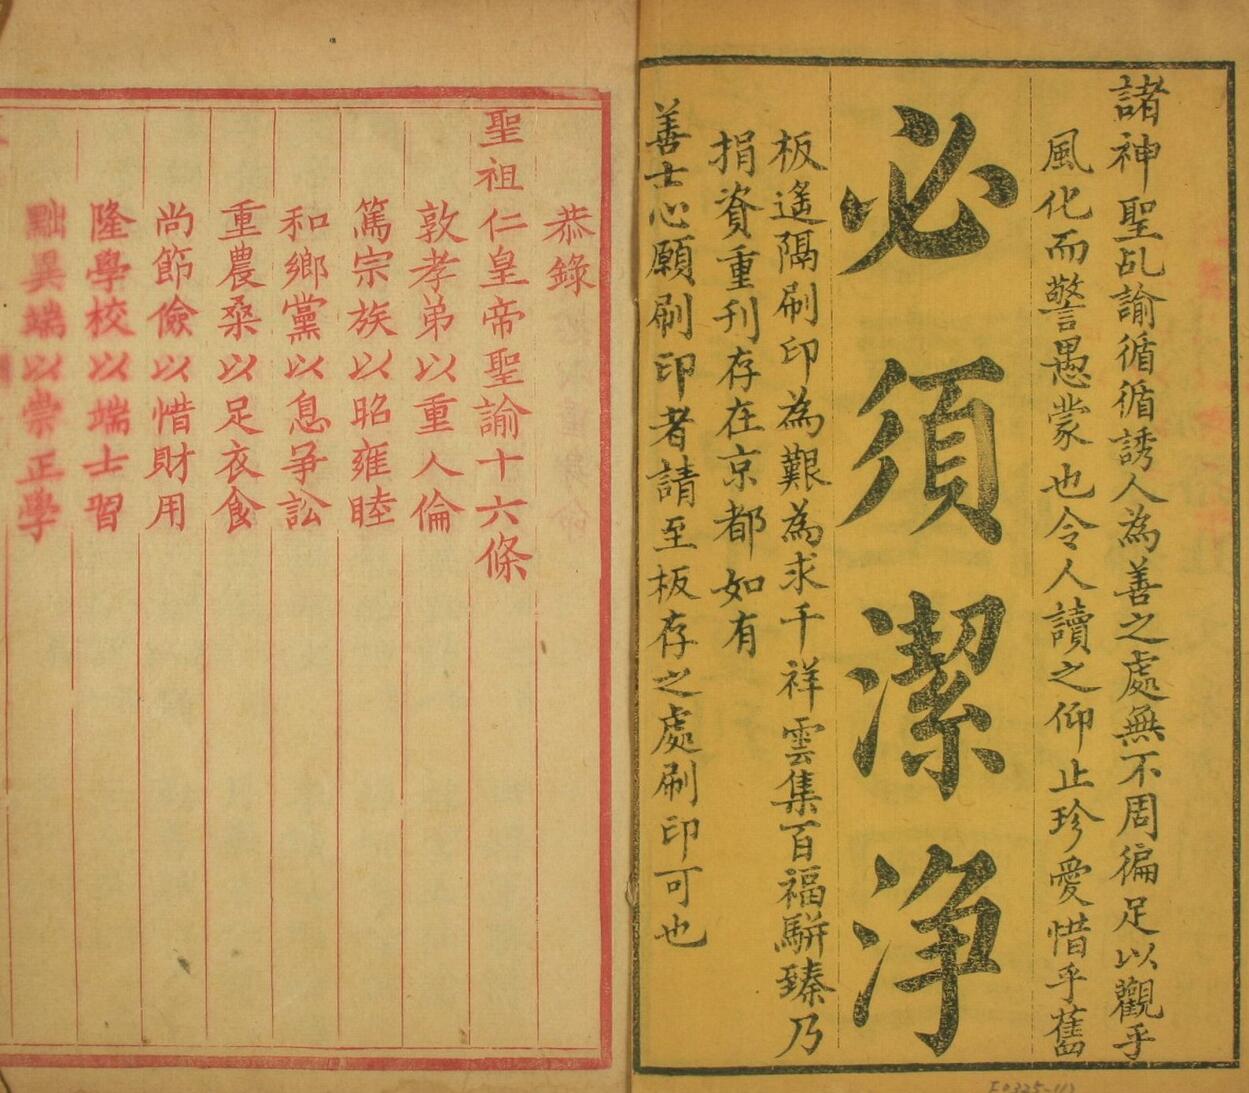 諸神聖乩諭循循誘人為善之處無不周徧足以觀乎
風化而警愚蒙也令人讀之仰止珍愛惜乎舊
必須潔净
板遙隔刷印為艱為求千祥雲集百福駢臻乃
捐資重刊存在京都如有
善士心願刷印者請至板存之處刷印可也
恭錄
聖祖仁皇帝聖諭十六條
敦孝弟以重人倫
篤宗族以昭雍睦
和鄉黨以息爭訟
重農桑以足衣食
尚節儉以惜財用
隆學校以端士習
黜異端以崇正學